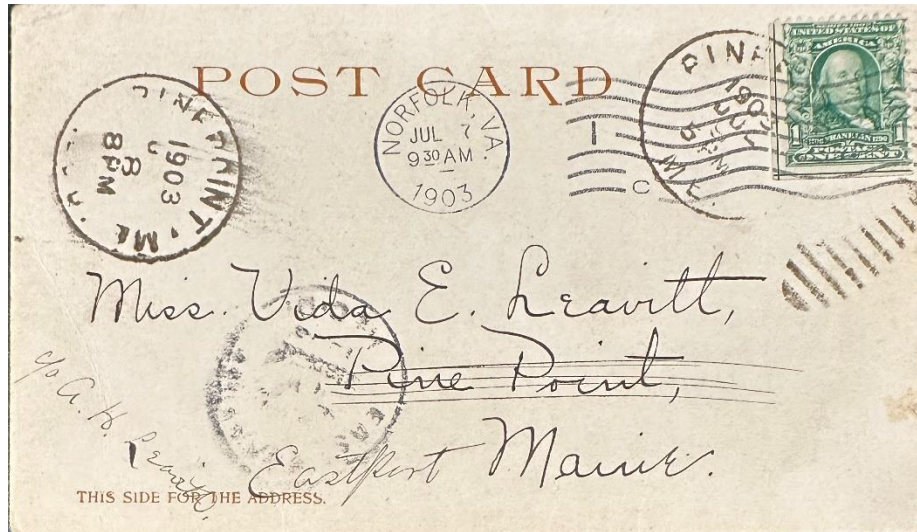 POST CARD
PINE POINT, ME.
1903
8 PM
NORFOLK, VA.
JUL 7
9 30 AM
1903
1
C
PINE
1903
JUL
ME.
SERIES 1902
UNITED STATES OF
AMERICA
FRANKLIN
1
1
POSTAGE
ONE CENT
Miss. Vida E. Leavitt,
Pine Point,
c/o A. H. Leavitt
Eastport Maine.
THIS SIDE FOR THE ADDRESS.